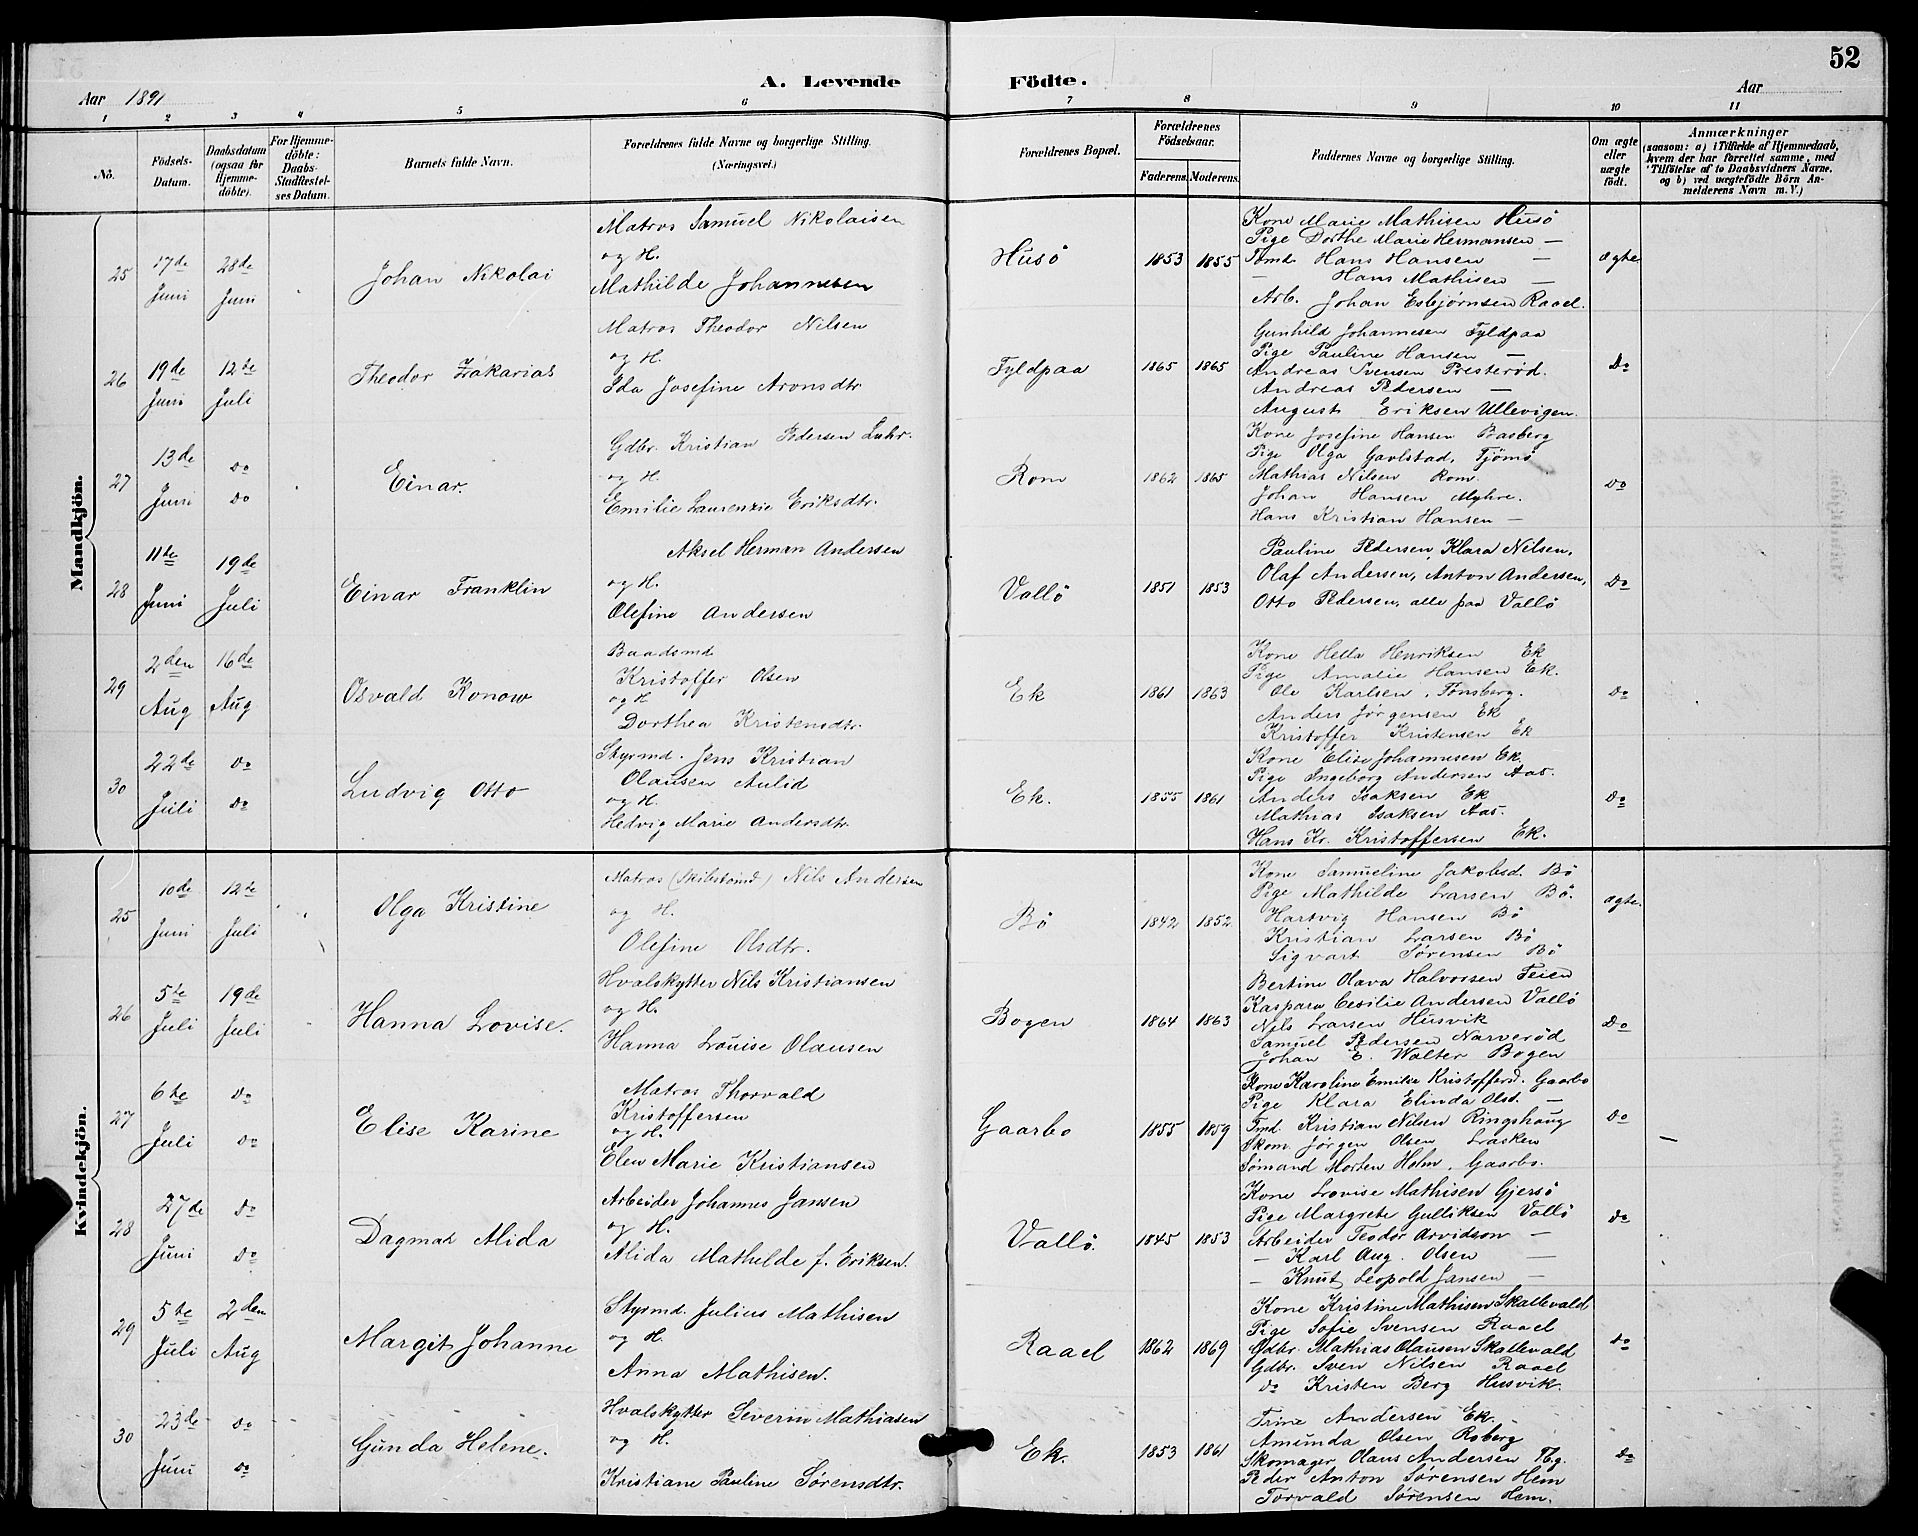 52
A. Levende Födte.
Aar 1891
Aar
1 2 3 4 5 6 7 8 9 10 11
No.
Födsels-Datum.
Daabsdatum (ogsaa for Hjemme-döbte).
For Hjemme-döbte: Daabs-Stadfæstel-ses Datum.
Barnets fulde Navn.
Forældrenes fulde Navne og borgerlige Stilling.
(Næringsvei.)
Forældrenes Bopæl.
Forældrenes Födselsaar.
Faderens. Moderens.
Faddernes Navne og borgerlige Stilling.
Om ægte eller uægte födt.
Anmærkninger
(saasom: a) i Tilfælde af Hjemmedaab, hvem der har forrettet samme, med Tilföielse af to Daabsvidners Navne, og b) ved uægtefödte Börn An-melderens Navn m. V.)
Mandkjön.
25 17de Juni 28de Juni Johan Nikolai
Matros Samuel Nikolaisen
og H.
Mathilde Johannesen
Husö 1853 1855
Kone Marie Mathisen Husö
Pige Dorthe Marie Hermansen —
Tmd. Hans Hansen —
— Hans Mathisen —
Arb. Johan Esbjørnsen Raael.
ægte
26 19de Juni 12te Juli Theodor Zakarias
Matros Theodor Nilsen
og H.
Ida Josefine Aronsdtr
Fyldpaa 1865 1865
Gunhild Johannesen Fyldpaa
Pige Pauline Hansen —
Andreas Svensen Presterød.
Andreas Pedersen —
August Eriksen Ullevigen.
Do
27 13de Juni do do Einar.
Gdbr. Kristian Pedersen Luhr.
og H.
Emilie Laurenzie Eriksdtr.
Rom 1862 1865
Kone Josefine Hansen Basberg
Pige Olga Gavlstad, Tjömö
Mathias Nilsen Rom
Johan Hansen Myhre.
Hans Kristian Hansen —
Do
28 11te Juni 19de Juli Einar Franklin
Aksel Herman Andersen
og H.
Olefine Andersen
Vallö 1851 1853
Pauline Pedersen, Klara Nilsen,
Olaf Andersen, Anton Andersen,
Otto Pedersen, alle paa Vallö
Do
29 2den Aug 16de Aug Osvald Konow
Baadsmd
Kristoffer Olsen
og H
Dorthea Kristensdtr.
Ek 1861 1863
Kone Hella Henriksen Ek
Pige Amalie Hansen Ek.
Ole Karlsen, Tønsberg.
Anders Jörgensen Ek
Kristoffer Kristensen Ek
Do
30 22de Juli do do Ludvig Otto
Styrmd. Jens Kristian
Olausen Aulid
og H.
Hedvig Marie Andersdtr.
Ek. 1855 1861
Kone Elise Johannesen Ek.
Pige Ingeborg Andersen Aas.
Anders Isaksen Ek
Mathias Isaksen Aas.
Hans Kr. Kristoffersen Ek.
Do
Kvindekjön.
25 10de Juni 12te Juli Olga Kristine
Matros Nils Andersen
og H.
Olefine Olsdtr.
Bö 1842 1852
Kone Samueline Jakobsd. Bö
Pige Mathilde Larsen Bö.
Hartvig Hansen Bö
Kristian Larsen Bö
Sigvart Sörensen Bö
ægte.
26 5te Juli 19de Juli Hanna Lovise.
Hvalskytter Nils Kristiansen
og H.
Hanna Louise Olausen
Bogen 1864 1863
Bertine Olava Halvorsen Teien
Kaspara Cesilie Andersen Vallö
Nils Larsen Husvik
Samuel Pedersen Narverød
Johan E. Walter Bogen
Do
27 6te Juli do do Elise Karine
Matros Thorvald
Kristoffersen
og H.
Elen Marie Kristiansen
Gaarbo 1855 1859
Kone Karoline Emilie Kristoffersd. Gaarbo
Pige Klara Elinda Olsd. —
Tmd. Kristian Nilsen Ringshaug
Skom. Jörgen Olsen Lasken
Sömand Morten Holm, Gaarbo.
Do
28 27de Juni do do Dagmar Alida
Arbeider Johannes Jansen
og H.
Alida Mathilde f. Eriksen.
Vallö. 1845 1853
Kone Lovise Mathisen Gjersö
Pige Margrete Gulliksen Vallö
Arbeider Teodor Arvidson —
— Karl Aug. Olsen —
— Knut Leopold Jansen —
Do
29 5te Juli 2den Aug Margit Johanne
Styrmd. Julius Mathisen
og H.
Anna Mathisen.
Raael 1862 1869
Kone Kristine Mathisen Skallevald
Pige Sofie Svensen Raael
Gdbr. Mathias Olausen Skallevald
Gdbr. Sven Nilsen Raael
do Kristen Berg Husvik.
Do
30 23de Juni do do Gunda Helene.
Hvalskytter Severin Mathiasen
og H.
Kristiane Pauline Sörensdtr.
Ek. 1853 1861
Trine Andersen Ek.
Amunda Olsen Roberg
Skomager Olaus Andersen Tbg.
Peder Anton Sörensen Hem
Torvald Sörensen Hem.
Do